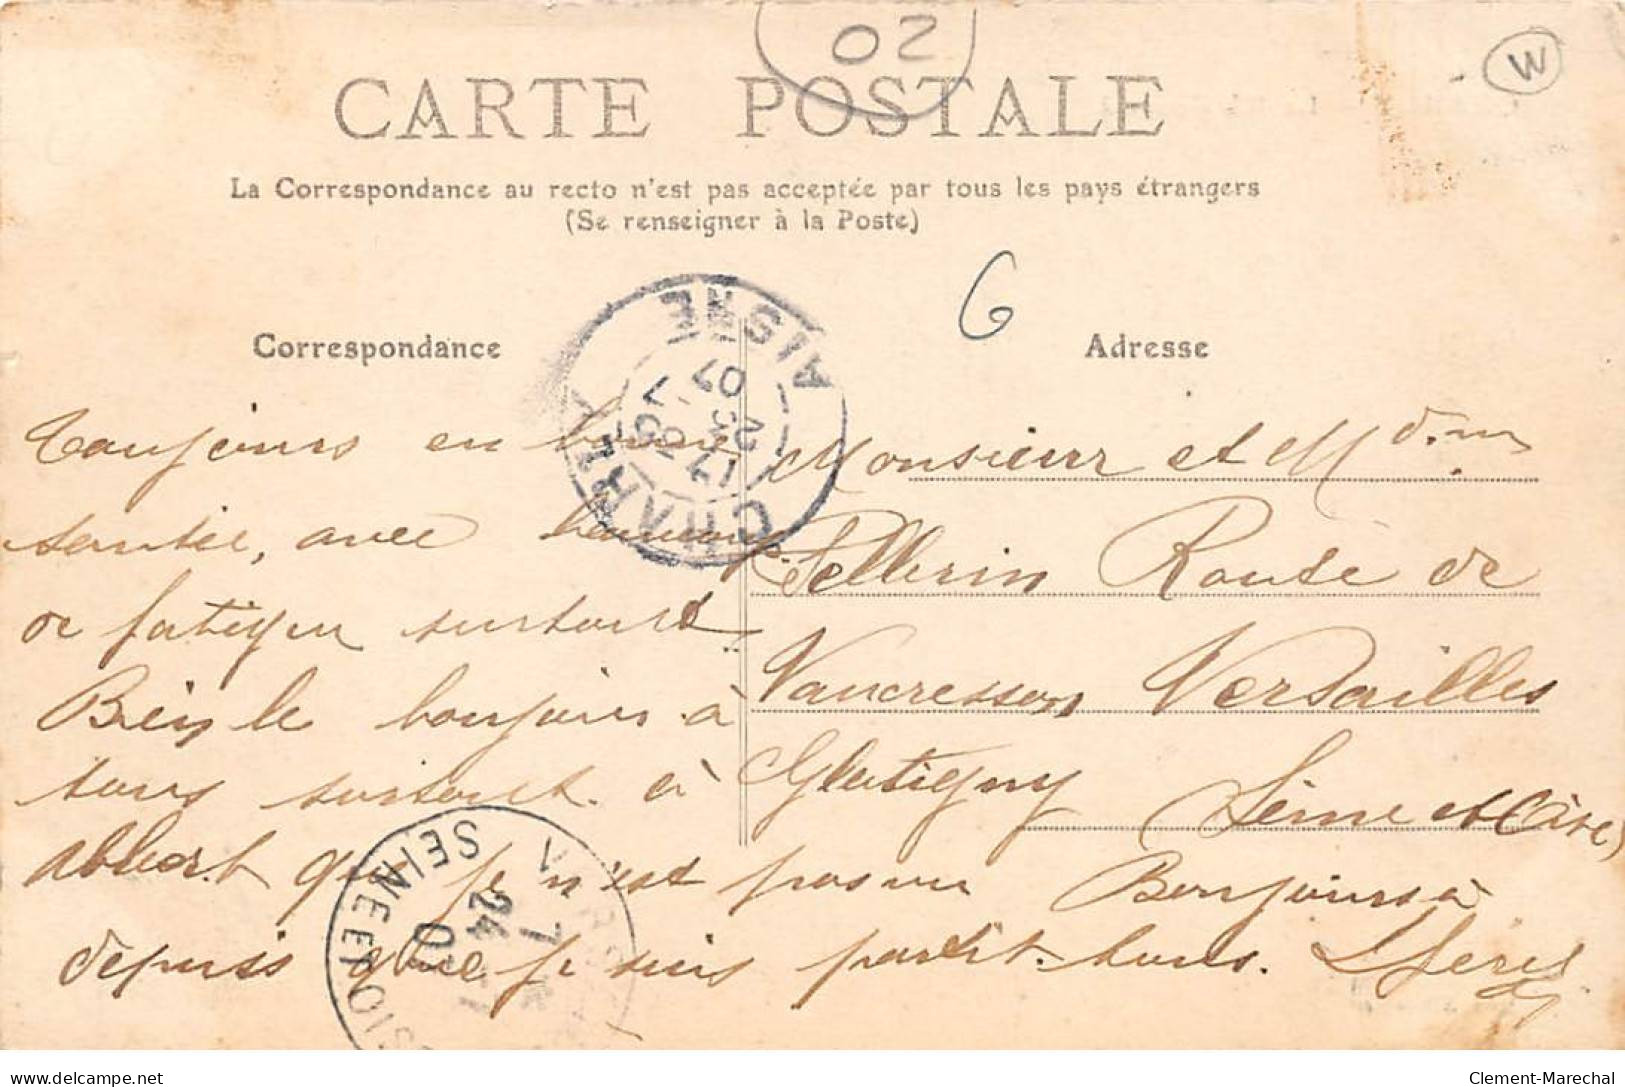 02
W
CARTE POSTALE
La Correspondance au recto n'est pas acceptée par tous les pays étrangers
(Se renseigner à la Poste)
6
Correspondance
Adresse
AISNE
17 30
23 7
07
CHARLY
Toujours en bonne
santée, avec beaucoup
de fatigue surtout
Bien le bonjour à
tous surtout à
Albert que je n'est pas vu
depuis que je suis partit.
Bonjours à
tous.
Monsieur et Mdm
Pellerin Route de
Vaucresson Versailles
Glatigny
Seine et Oise
SEINE ET OISE
7
24
07
Clement-Marechal